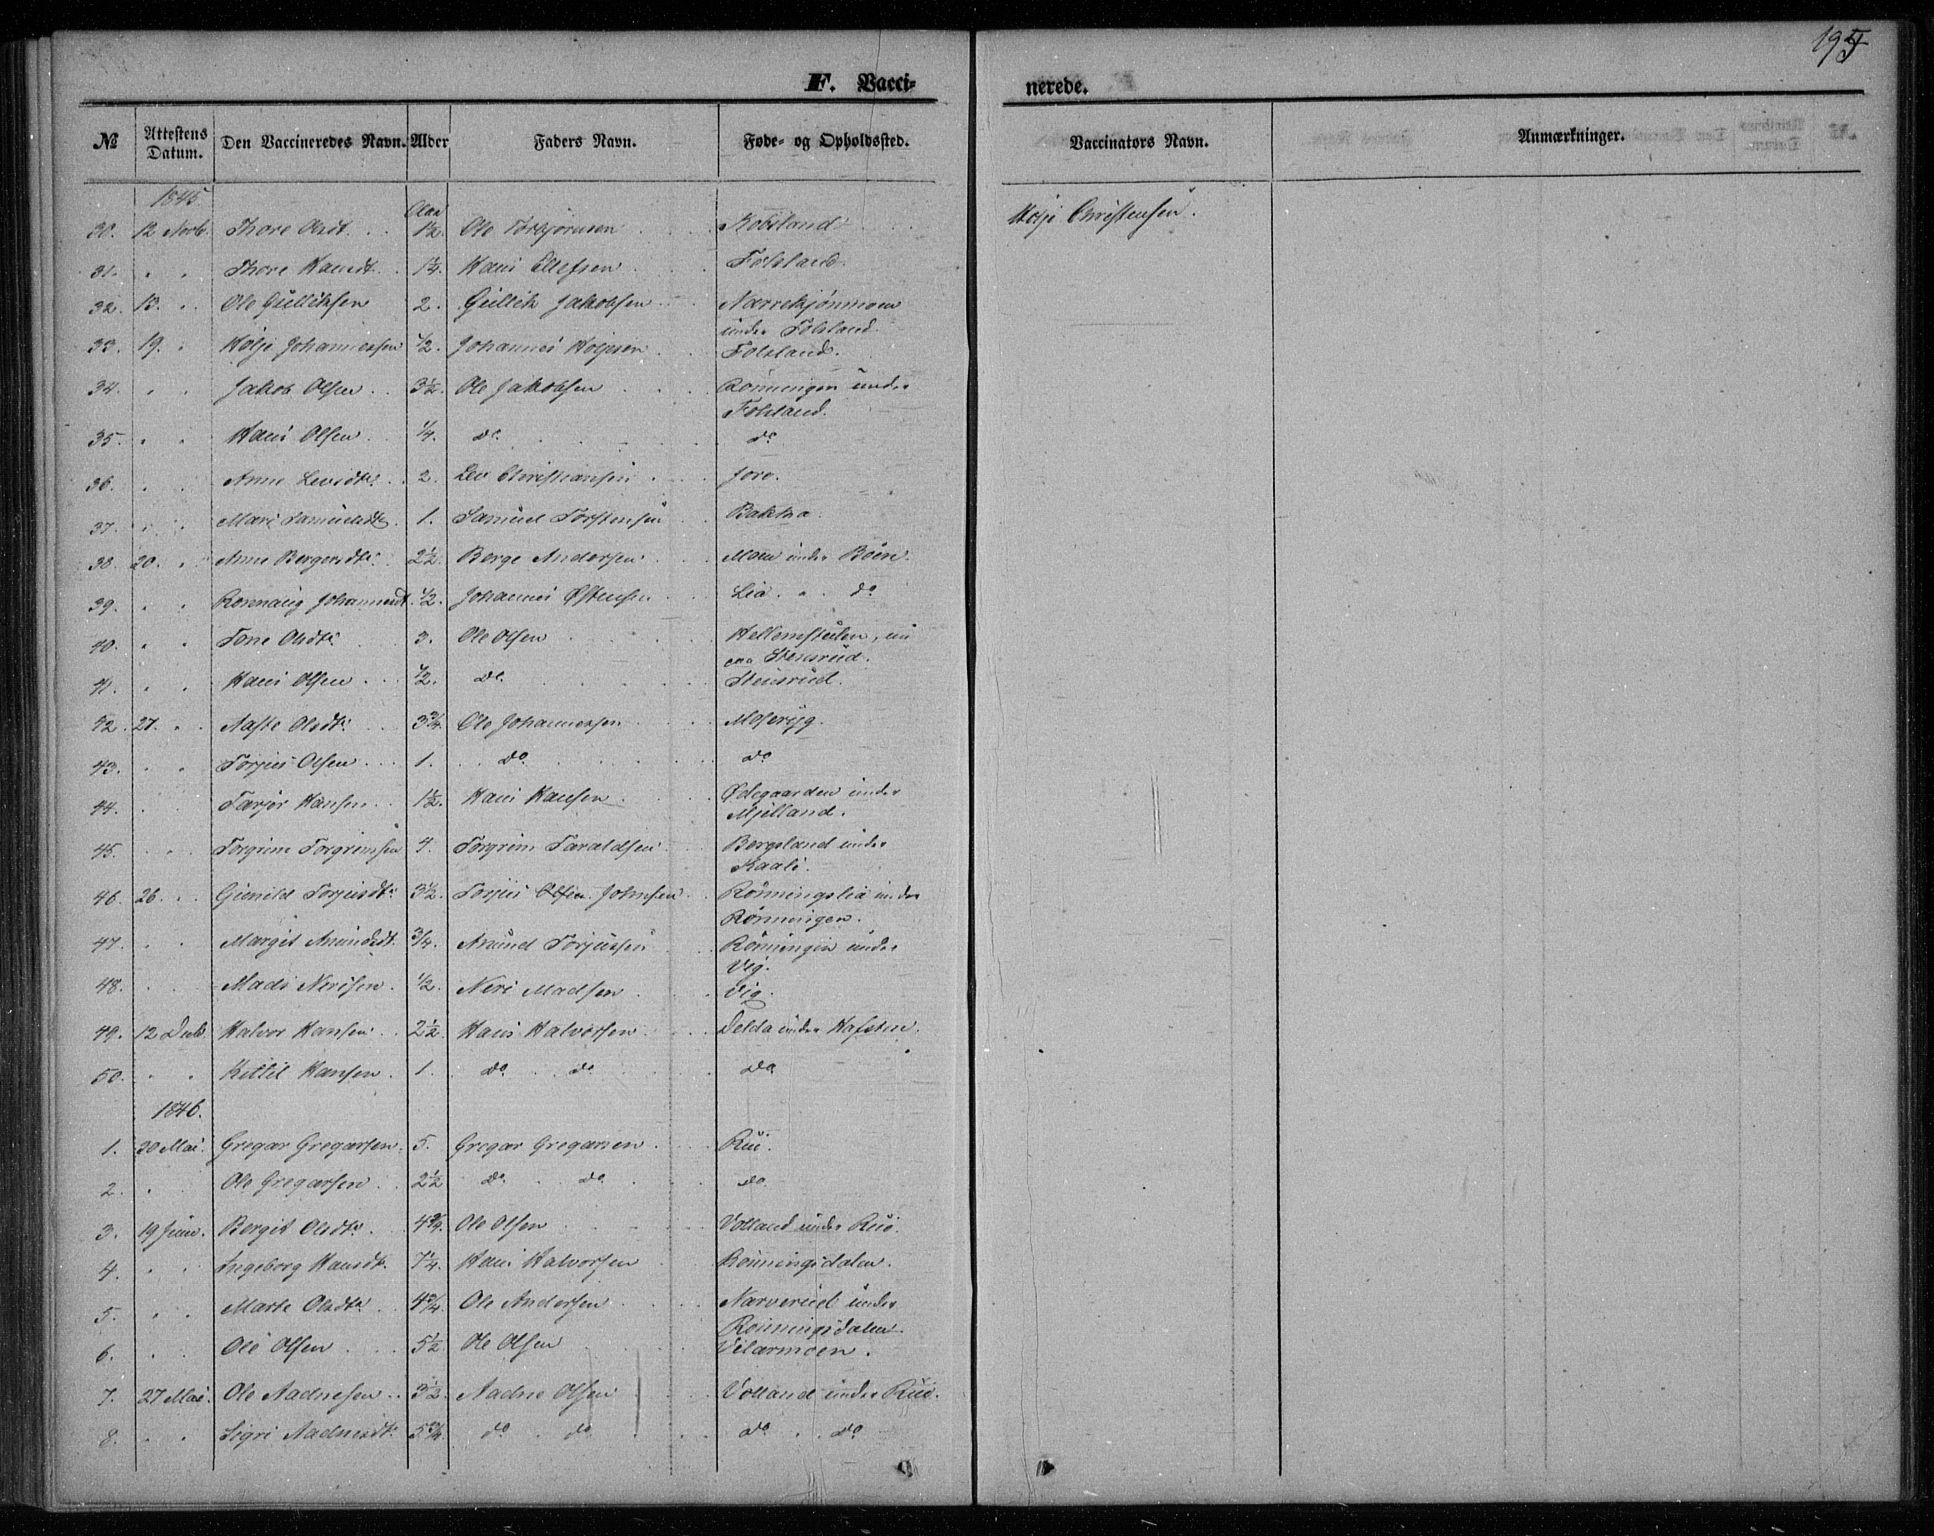 195
F. Vacci-
nerede.
№ Attestens Datum. Den Vaccineredes Navn. Alder Faders Navn. Føde- og Opholdssted. Vaccinators Navn. Anmærkninger.
1845.
Aar
30. 12 Novb. Thore Olsdt. 1½. Ole Torbjørnsen Kobsland Christensen.
31. " " Thore Hansdt. 1¼. Hans Ellefsen Folsland.
32. 13. " Ole Gullichsen 2. Gullich Jakobsen
under Folsland.
33. 19. " Kolje Johannessen ½. Johannes Koljesen Folsland.
34. " " Jakob Olsen 3½. Ole Jakobsen Rønningen under
Folsland.
35. " " Hans Olsen ¼. do do
36. " " Anne Levsdtr. 2. Lev Christiansen Jore.
37. " " Mari Samuelsdtr. 1. Samuel Torstensen Bakka.
38. 20. " Anne Bergesdtr. 2½. Berge Andersen Moen under Böen.
39. " " Johannesdt. ½. Johannes Østensen Lia " do
40. " " Tone Olsdtr. 3. Ole Olsen nu
paa Stensrud.
41. " " Hans Olsen ½. do Stensrud.
42. 21. " Aaste Olsdtr. 3¾. Ole Johannessen Moseryg.
43. " " Torjus Olsen 1. do do
44. Tarjer Hansen 1½. Hans Hansen Ødegaarden under
Mjelland.
45. Torgrim Torgrimsen 4. Torgrim Taraldsen Bergsland under
Kaali.
46. 26. " Gunild Torjusdtr. 3½. Torjus Olsen Johnsen Rønningslia under
Rønningen.
47. " " Margit Anundsdt. ¾. Anund Torjussen Rønningen under
Vig.
48. Mads Nerisen ½. Neri Madsen Vig.
49. 12 Decb. Halvor Hansen 2½. Hans Halvorsen Delda under Hafsten.
50. " " Kittil Hansen 1. do do do
1846.
1. 30 Mai. Gregar Gregarsen 5. Gregar Gregarsen Rui.
2. " Ole Gregarsen 2½ do do do
3. 19 Juni. Bergit Olsdtr. 4¾. Ole Olsen Volland under Rui.
4. " " Ingeborg Hansdtr. 7¼. Hans Halvorsen Rønningsdalen.
5. " " Marte Olsdtr 4¾. Ole Andersen Narverud under
Rønningsdalen
6. " Ole Olsen 5½ Ole Olsen Vilarmoen.
7. 27 Mai. Ole Aadnesen 3½. Aadne Olsen Volland under Rui.
8. " " Sigri Aadnesdtr. 5¾. do do do do